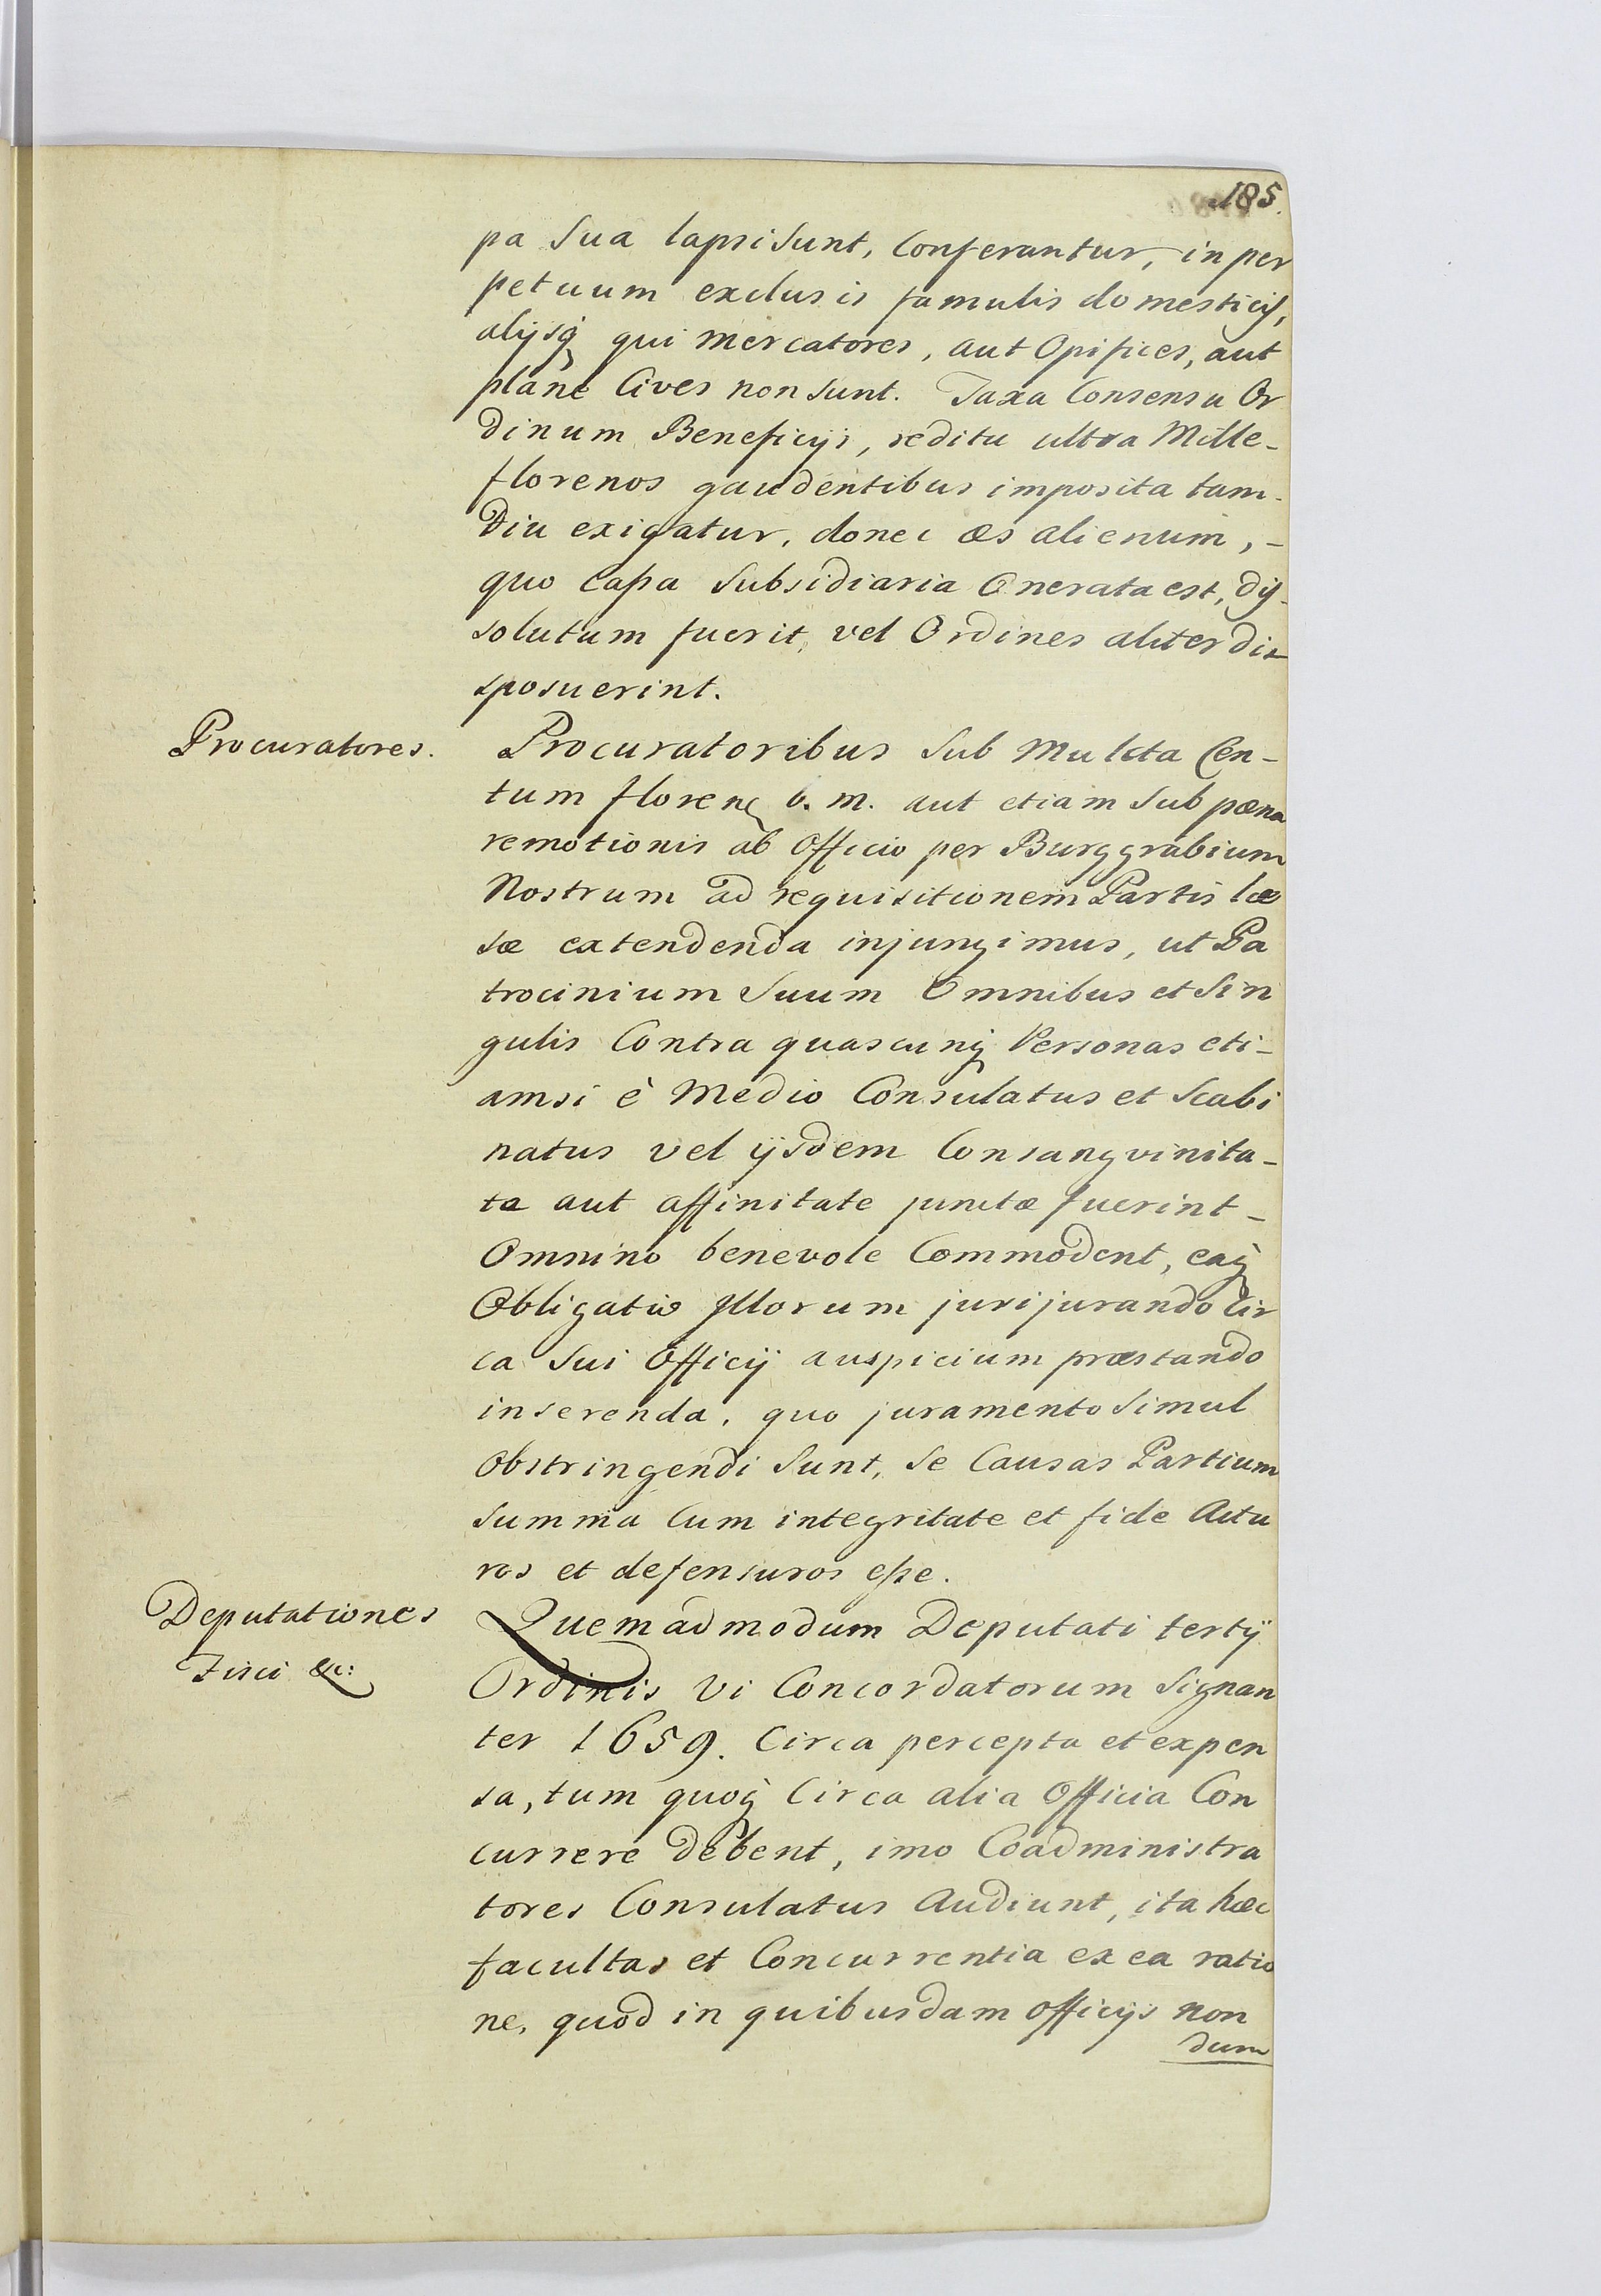 185.
pa sua lapsi sunt, Conferantur, in per
petuum exclusis famulis domesticis,
alijsq₃ qui mercatores, aut Opifices, aut
plane Cives non sunt. Taxa Consensu Or
dinum Beneficijs, reditu ultra Mille-
florenos gaudentibus imposita tam-
diu exigatur, donec æs alienum, -
quo Cassa Subsidiaria Onerata est, dis-
solutum fuerit, vel Ordines aliter di-
sposuerint.
Procuratores.
Procuratoribus sub Mulcta Cen-
tum floren b. m. aut etiam sub pœna
remotionis ab Officio per Burggrabium
Nostrum ad requisitionem Partis læ
sæ extendenda injungimus, ut Pa
trocinium suum Omnibus et Sin
gulis Contra quascunq₃ Personas eti-
amsi è Medio Consulatus et Scabi
natus vel ijsdem Consangvinita-
te aut affinitate junctæ fuerint -
Omnino benevole Commodent, eaq₃
Obligatio Illorum jurijurando Cir
ca sui Officij auspicium præstando
inserenda, quo juramento simul
Obstringendi sunt, se Causas Partium
summa Cum integritate et fide Actu
ros et defensuros esse.
Deputationes
Fisci &c:
Quemadmodum Deputati tertij
Ordinis vi Concordatorum signan
ter 1659. Circa percepta et expen
sa, tum quoq₃ Circa alia Officia Con
currere debent, imo Coadministra
tores Consulatus Audiunt, ita hæc
facultas et Concurrentia ex ea ratio
ne, quod in quibusdam officijs non
dum